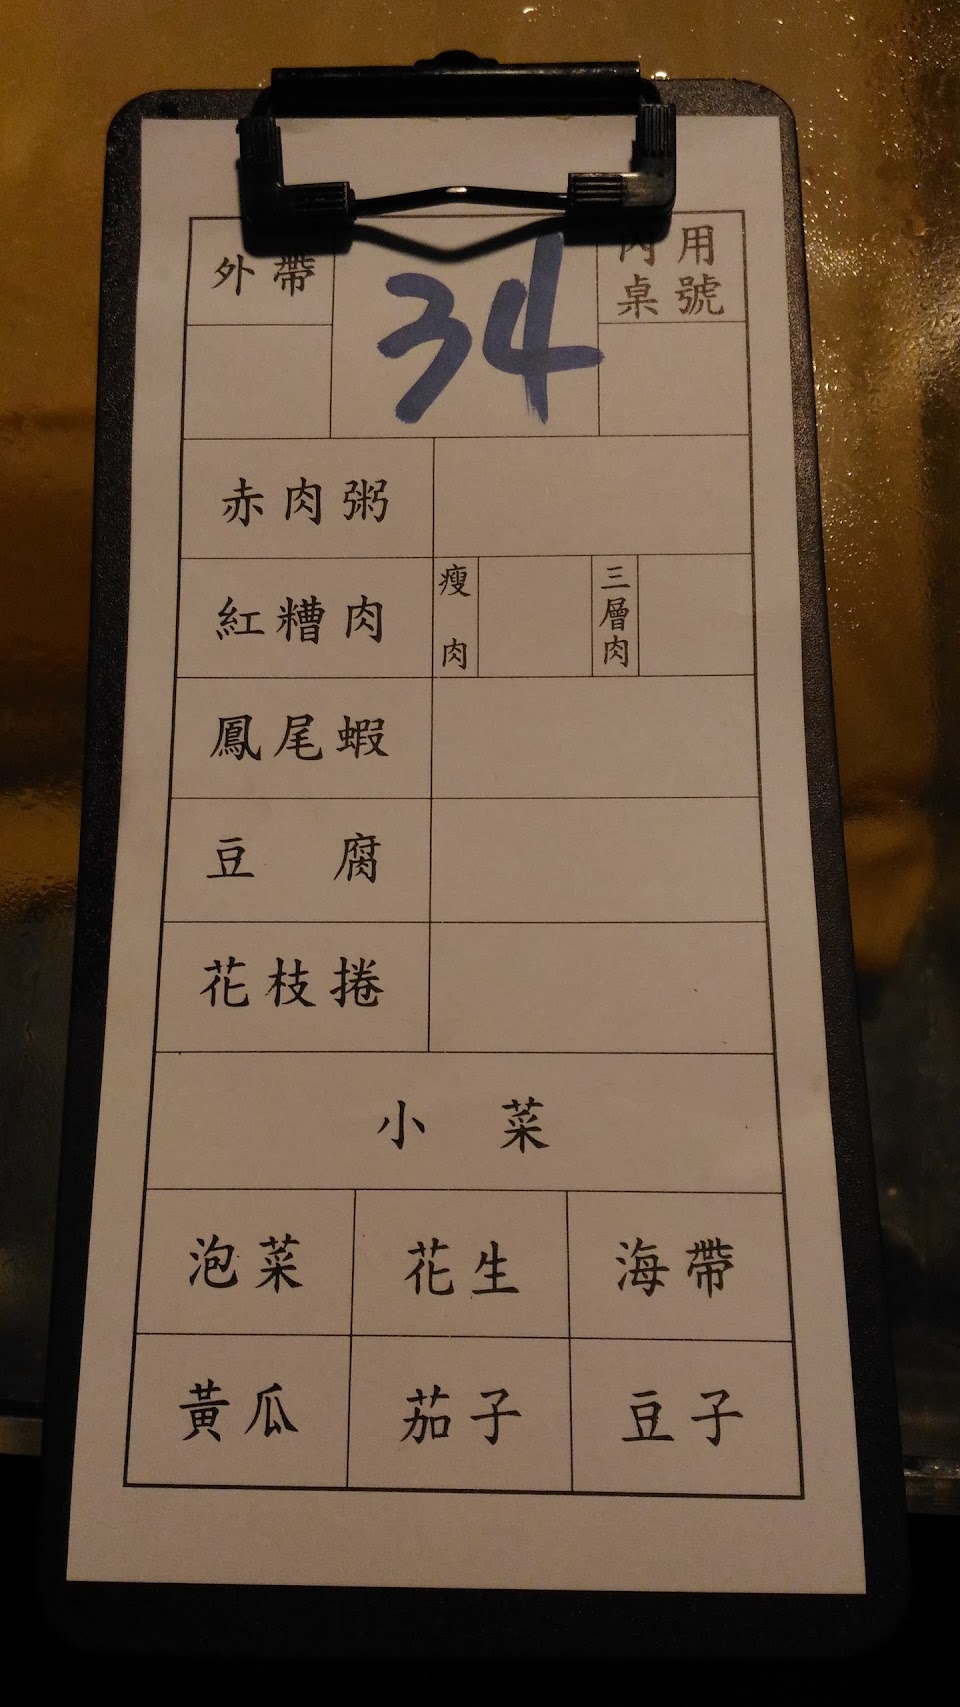 外帶
34
內用
桌號
赤肉粥
紅糟肉
瘦肉
三層肉
鳳尾蝦
豆腐
花枝捲
小菜
泡菜 花生 海帶
黃瓜 茄子 豆子